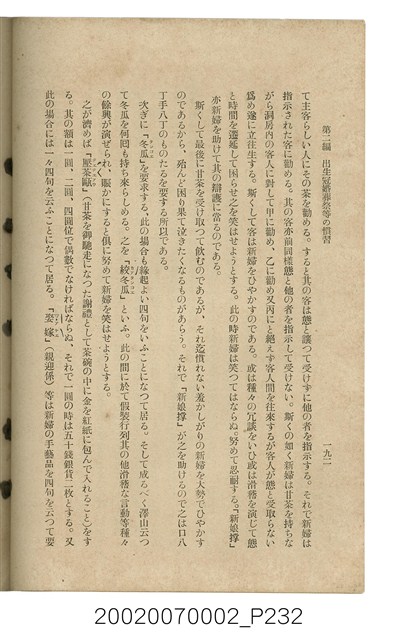 第二編 出生冠婚葬祭等の慣習
一九二
て主客らしい人にその茶を勸める。すると其の客は態と讓つて受けずに他の者を指示する。それで新婦は
指示された客に勸める。其の客亦前同樣態と他の者を指示して受けない。斯くの如く新婦は甘茶を持ちな
がら洞房内の客人に對して甲に勸め、乙に勸め又丙にと絕えず客人間を往來するが客人が態と受取らない
爲め遂に立往生する。斯くして客は新婦をひやかすのである。或は種々の冗談をいひ或は滑稽を演じて態
と時間を遷延して困らせ之を笑はせようとする。此の時新婦は笑つてはならぬ。努めて忍耐する。「新娘撑」
亦新婦を助けて其の辯護に當るのである。
斯くして最後に甘茶を受け取つて飮むのであるが、それ迄慣れない羞かしがりの新婦を大勢でひやかす
のであるから、殆んど困り果て泣きたくなるものがあらう。それで「新娘撑」が之を助けるので之は口八
丁手八丁のものたるを要する所以である。
次ぎに「冬瓜」を要求する。此の場合も緣起よい四句をいふことになつて居る。そして成るべく澤山云つ
て冬瓜を何回も持ち來らしめる。之を「絞冬瓜」といふ。此の間に於て假裝行列其の他滑稽な言動等種々
の餘興が演ぜられ、賑かにすると俱に努めて新婦を笑はせようとする。
之が濟めば「壓茶甌」(甘茶を御馳走になつた謝禮として茶碗の中に金を紅紙に包んで入れること)をす
る。其の額は一圓、二圓、四圓位で偶數でなければならぬ、それで一圓の時は五十錢銀貨二枚とする。又
此の場合には一々四句を云ふことになつて居る。「娶嫁」(親迎係)等は新婦の手藝品を四句を云つて要
20020070002_P232